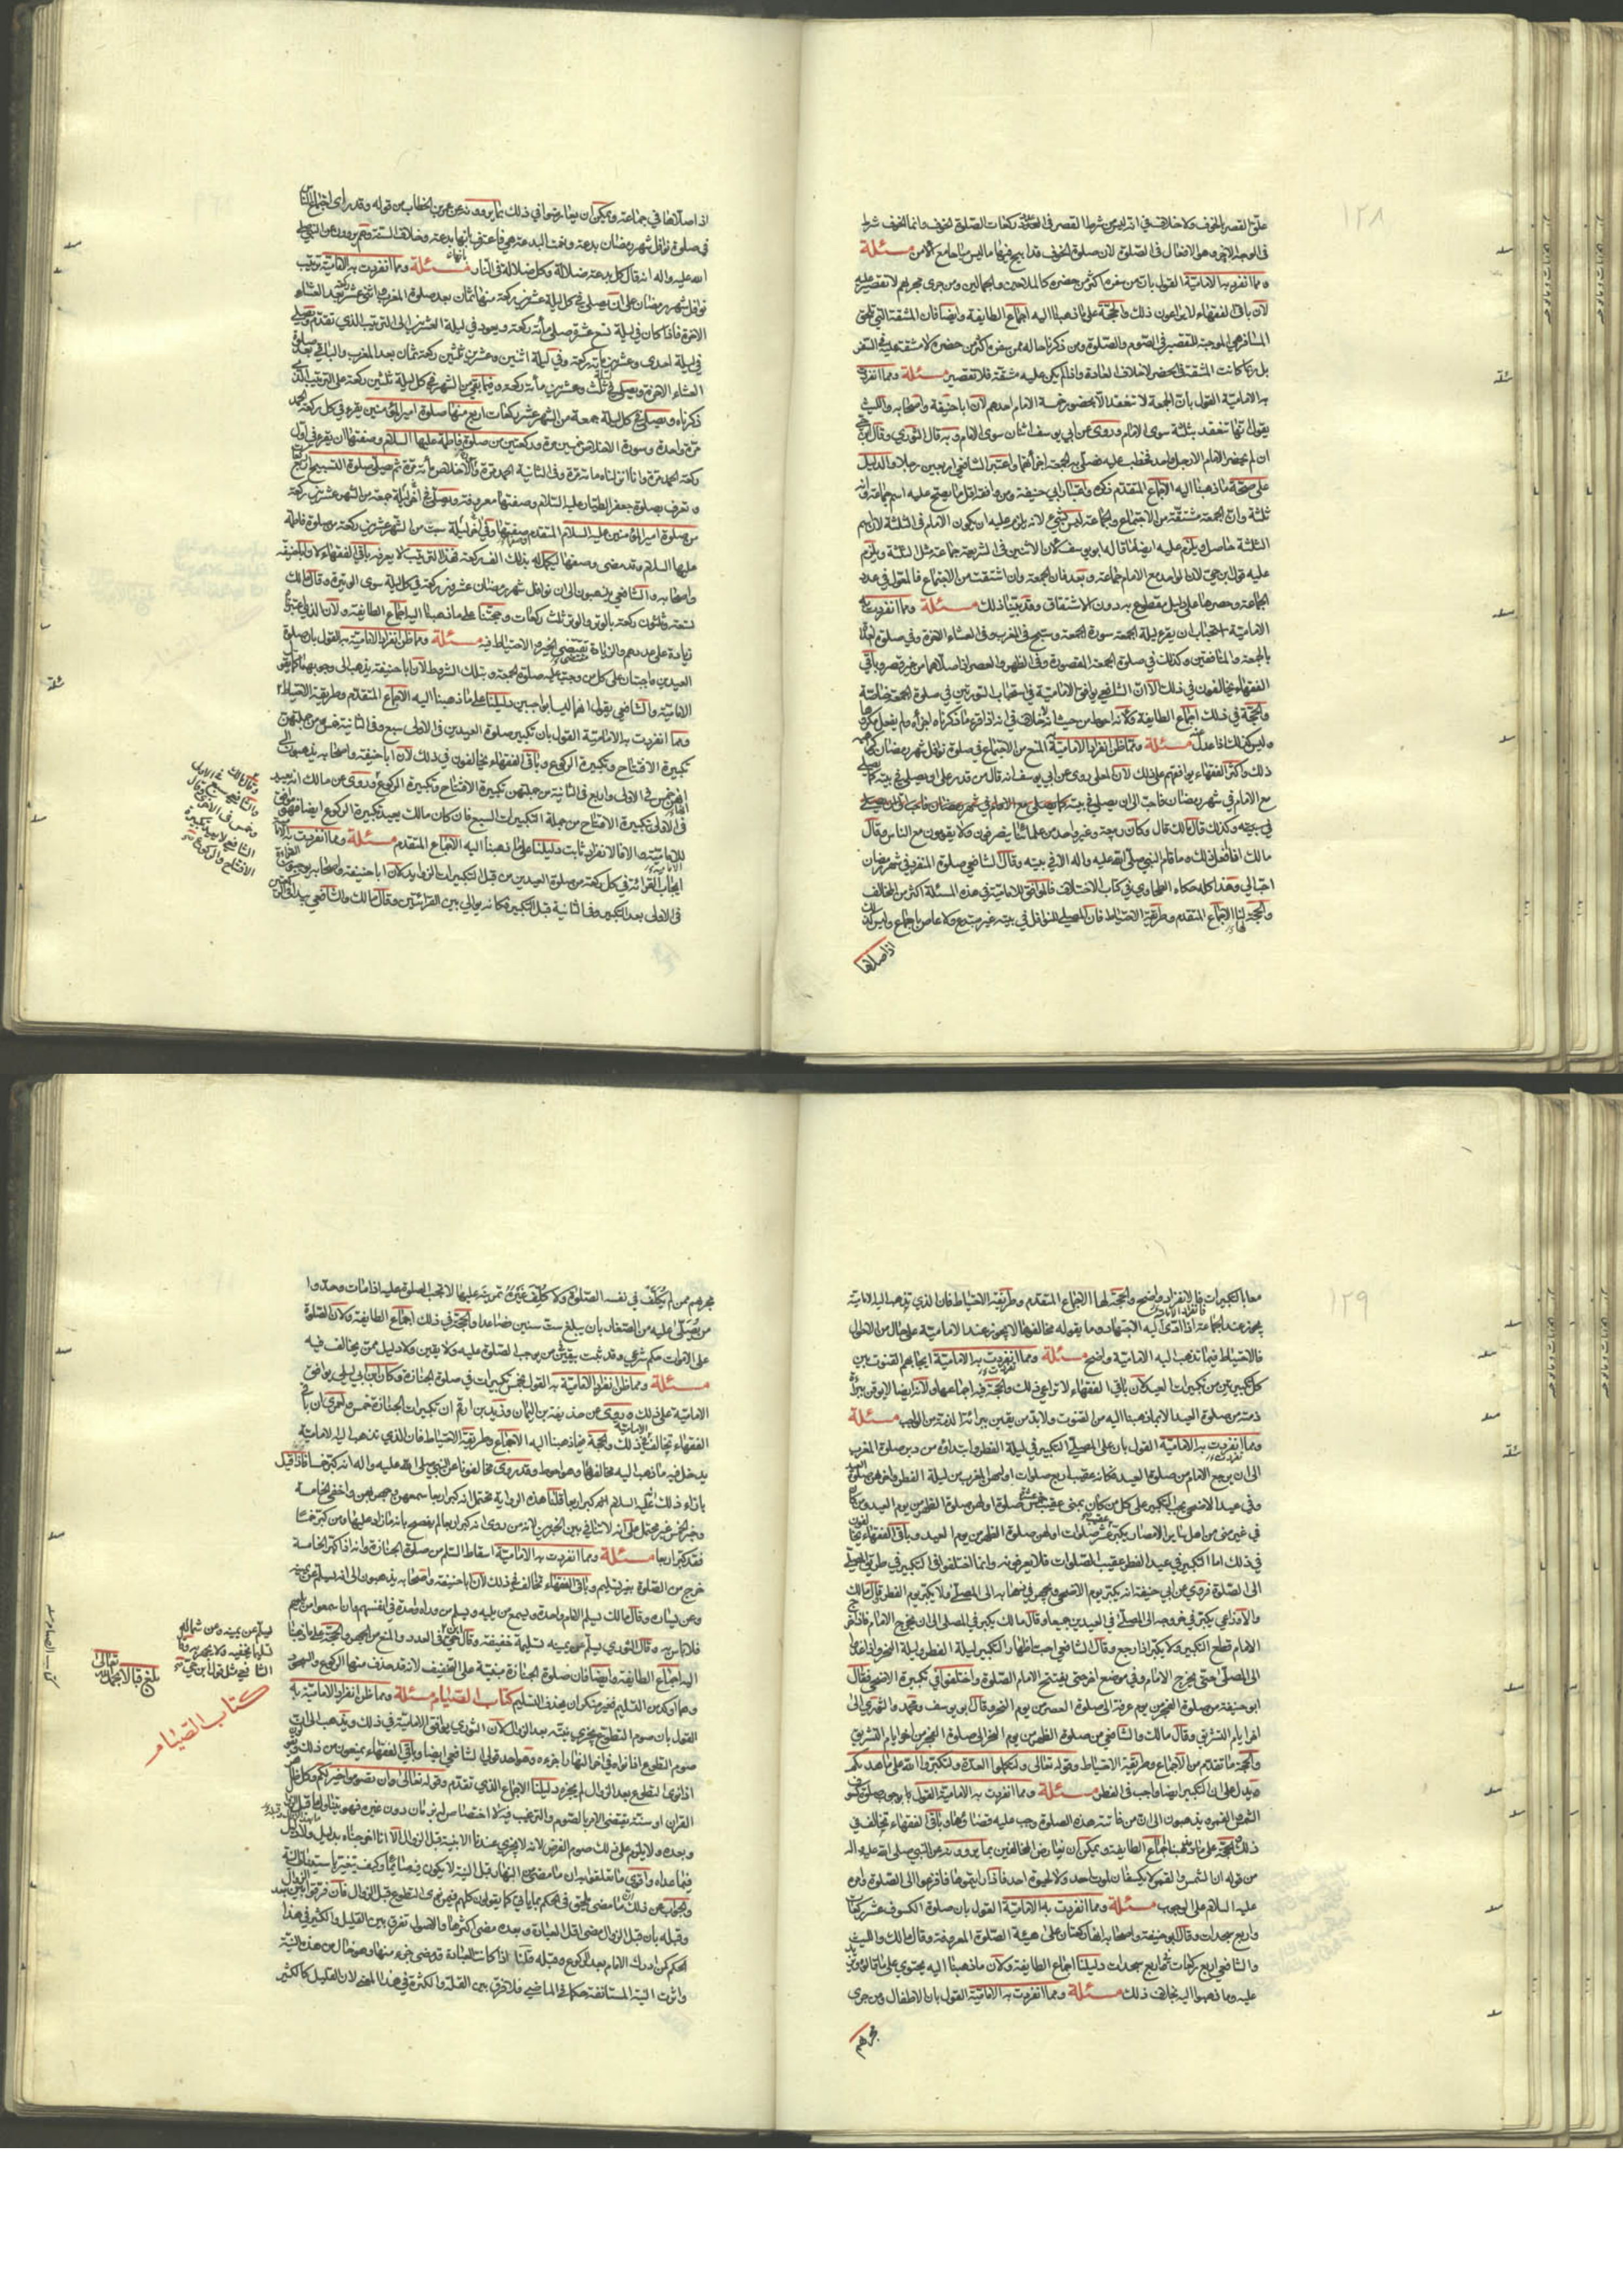 ١٢٨
علق القصر بالخوف ولا خلاف في انه ليس من شرط القصر في عدد ركعات الصلوة الخوف وانما الخوف شرط
في الوجه الاخر وهو الافعال في الصلوة لان صلوة الخوف قد ابيح فيها ما ليس مباحا مع الامن مسئلة
ومما انفردت به الامامية القول بان من سفره اكثر من حضره كالملاحين والجمالين ومن جرى مجراهم لا تقصير عليه
لان باقي الفقهاء لا يراعون ذلك والحجة على ما ذهبنا اليه اجماع الطايفة وايضا فان المشقة التي تلحق
المسافر هي الموجبة للتقصير في الصوم والصلوة ومن ذكرنا حاله ممن سفره اكثر من حضره لا مشقة عليه في السفر
بل ربما كانت المشقة في الحضر لاختلاف العادة واذا لم يكن عليه مشقة فلا تقصير مسئلة ومما انفردت
به الامامية القول بان الجمعة لا تنعقد الا بحضور خمسة الامام احدهم لان ابا حنيفة واصحابه والليث
يقولون انها تنعقد بثلثة سوى الامام وروى عن ابي يوسف اثنان سوى الامام وبه قال الثوري وقال ابن حي
ان لم يحضر الامام الا رجل واحد فخطب عليه فصلى به الجمعة اجزأتهما واعتبر الشافعي اربعين رجلا والدليل
على صحة ما ذهبنا اليه الاجماع المتقدم ذكره
ثلثة وان الجمعة مشتقة من الاجتماع والجماعة ليس بشيء لانه يلزم عليه ان يكون الامام في الثلثة لان اسم
الثلثة حاصل ويلزم عليه ايضا ما قاله ابو يوسف لان الاثنين في الشريعة جماعة مثل الثلثة ويلزم
عليه قول ابن حي لان الواحد مع الامام جماعة وبعد فان الجمعة وان اشتقت من الاجتماع فالمعول في عدد
الجماعة وحصرها على دليل مقطوع به دون الاشتقاق وقد بينا ذلك مسئلة ومما انفردت به
الامامية استحباب ان يقرء ليلة الجمعة سورة الجمعة وسبح في المغرب وفي العشاء الاخرة وفي صلوة الغداة
بالجمعة والمنافقين وكذلك في صلوة الجمعة المقصورة وفي الظهر والعصر اذا صلاهما من غير قصر وباقي
الفقهاء يخالفون في ذلك الا ان الشافعي يوافق الامامية في استحباب السورتين في صلوة الجمعة خاصة
والحجة في ذلك اجماع الطايفة ولانه احوط من حيث لا خلاف في انه اذا قرء ما ذكرناه اجزأه ولم يفعل مكروها
وليس كذلك اذا عدل مسئلة ومما ظن انفراد الامامية به المنع من الاجتماع في صلوة نوافل شهر رمضان
ذلك واكثر الفقهاء يوافقهم على ذلك لان المعلى روى عن ابي يوسف انه قال من قدر على ان يصلي في بيته كما يصلي
مع الامام في شهر رمضان فاحب الي ان يصلي في بيته
في بيته وكذلك قال مالك قال وكان ربيعة وغير واحد من علمائنا ينصرفون ولا يقومون مع الناس وقال
مالك انا افعل ذلك وما قام النبي صلى الله عليه واله الا في بيته وقال الشافعي صلوة المنفرد في شهر رمضان
احب الي وهذا كله حكاه الطحاوي في كتاب الاختلاف فالموافق للامامية في هذه المسئلة اكثر من المخالف
والحجة لها الاجماع المتقدم وطريقة الاحتياط فان المصلي للنوافل في بيته غير مبتدع ولا عاص باجماع وليس كذلك
اذا صلاها
اذا صلاها في جماعة ويمكن ان يعارضوا في ذلك بما يروونه عن عمر بن الخطاب من قوله وقد راى اجتماع الناس
في صلوة نوافل شهر رمضان بدعة ونعمت البدعة هي فاعترف بانها بدعة وخلاف السنة وهم يروون عن النبي صلى
الله عليه واله انه قال كل بدعة ضلالة وكل ضلالة في النار مسئلة ومما انفردت به الامامية ترتيب
نوافل شهر رمضان على ان يصلي في كل ليلة عشرين ركعة منها ثمان بعد صلوة المغرب واثنتي عشر ركعة بعد العشاء
الاخرة فاذا كان في ليلة تسع عشرة صلى مائة ركعة ويعود في ليلة العشرين الى الترتيب الذي تقدم ويصلي
في ليلة احدى وعشرين مائة ركعة وفي ليلة اثنين وعشرين ثلثين ركعة ثمان بعد المغرب والباقي بعد صلوة
العشاء الاخرة ويصلي في ليلة ثلث وعشرين مائة ركعة وفيما بقي من الشهر في كل ليلة ثلثين ركعة على الترتيب الذي
ذكرناه ويصلي في كل ليلة جمعة من الشهر عشر ركعات اربع منها صلوة امير المؤمنين يقرء في كل ركعة الحمد
مرة واحدة وسورة الاخلاص خمسين مرة وركعتين من صلوة فاطمة عليها السلام وصفتها ان يقرء في اول
ركعة الحمد مرة وانا انزلناه مائة مرة وفي الثانية الحمد مرة والاخلاص مائة مرة ثم يصلي صلوة التسبيح اربع ركعات
وتعرف بصلوة جعفر الطيار عليه السلام وصفتها معروفة ويصلي في اخر ليلة جمعة من الشهر عشرين ركعة
من صلوة امير المؤمنين عليه السلام المتقدم وصفها وفي اخر ليلة سبت من الشهر عشرين ركعة من صلوة فاطمة
عليها السلام وقد مضى وصفها ليكمل له بذلك الف ركعة فهذا الترتيب لا يعرفه باقي الفقهاء لان ابا حنيفة
واصحابه والشافعي يذهبون الى ان نوافل شهر رمضان عشرون ركعة في كل ليلة سوى الوتر وقال مالك
تسعة وثلثون ركعة بالوتر والوتر ثلث ركعات وحجتنا على ما ذهبنا اليه اجماع الطايفة
زيادة على عددهم والزيادة تقتضي الخير والاحتياط فيه مسئلة ومما ظن انفراد الامامية به القول بان صلوة
العيدين واجبتان على كل من وجبت عليه صلوة الجمعة وبتلك الشروط لان ابا حنيفة يذهب الى وجوبهما كما يقول
الامامية والشافعي يقول انهما ليسا بواجبين دليلنا على ما ذهبنا اليه الاجماع المتقدم وطريقة الاحتياط
ومما انفردت به الامامية القول بان تكبير صلوة العيدين في الاولى سبع وفي الثانية خمس من جملتهن
تكبيرة الافتتاح وتكبيرة الركوع وباقي الفقهاء يخالفون في ذلك لان ابا حنيفة واصحابه يذهبون الى
انهن خمس في الاولى واربع في الثانية من جملتهن تكبيرة الافتتاح وتكبيرة الركوع وروى عن مالك انه يعيد
في الاولى تكبيرة الافتتاح من جملة التكبيرات السبع فان كان مالك يعيد تكبيرة الركوع ايضا فهو موافق
للامامية والا فالانفراد ثابت دليلنا على ما ذهبنا اليه الاجماع المتقدم مسئلة ومما انفردت به الامامية
ايجاب القراءة في كل ركعة من صلوة العيدين من قبل التكبيرات الزوايد لان ابا حنيفة واصحابه
في الاولى بعد التكبير وفي الثانية قبل التكبير فكانه يوالي بين القرائتين وقال مالك والشافعي
وقال مالك
والشافعي سبع في الاولى
وخمس في الاخرى وقال
الشافعي لا يعيد تكبيرة
الافتتاح والركوع
١٢٩
معا بالتكبيرات فالانفراد واضح والحجة لها الاجماع المتقدم وطريقة الاحتياط فان الذي تذهب اليه الامامية
يجوز عند الجماعة اذا ادى اليه الاجتهاد وما يقوله مخالفها لا يجوز عند الامامية على حال من الاحوال
فالاحتياط فيما تذهب اليه الامامية واضح مسئلة ومما انفردت به الامامية ايجابهم القنوت بين
كل تكبيرتين من تكبيرات العيد لان باقي الفقهاء لا يراعي ذلك والحجة فيه اجماعها ولانه ايضا لا يوقن ببراءة
ذمته من صلوة العيد الا بما ذهبنا اليه من القنوت ولا بد من يقين ببرائة الذمة من الواجب مسئلة
ومما انفردت به الامامية القول بان على المصلي التكبير في ليلة الفطر وابتداؤه من دبر صلوة المغرب
الى ان يرجع الامام من صلوة العيد فكانه عقيب اربع صلوات اولهن المغرب من ليلة الفطر واخرهن صلوة العيد
وفي عيد الاضحى يجب التكبير على كل من كان بمنى عقيب خمس عشرة صلوة اولهن صلوة الظهر من يوم العيد ومن كان
في غير منى من اهل ساير الامصار يكبر عقيب عشر صلوات اولهن صلوة الظهر من يوم العيد وباقي الفقهاء يخالفون
في ذلك اما التكبير في عيد الفطر عقيب الصلوات فلا يعرفونه وانما اختلفوا في التكبير في طريق المصلي
الى الصلوة فروى عن ابي حنيفة انه يكبر يوم الاضحى ويجهر في ذهابه الى المصلى ولا يكبر يوم الفطر وقال مالك
والاوزاعي يكبر في خروجه الى المصلى في العيدين جميعا وقال مالك يكبر في المصلى الى ان يخرج الامام فاذا خرج
الامام قطع التكبير ولا يكبر اذا رجع وقال الشافعي احب اظهار التكبير ليلة الفطر وليلة النحر واذا غدوا
الى المصلى حتى يخرج الامام وفي موضع اخر حتى يفتتح الامام الصلوة واختلفوا في تكبيرة الاضحى فقال
ابو حنيفة من صلوة الفجر من يوم عرفة الى صلوة العصر من يوم النحر وقال ابو يوسف ومحمد والثوري الى
اخر ايام التشريق وقال مالك والشافعي من صلوة الظهر من يوم النحر الى صلوة الفجر من اخر ايام التشريق
والحجة ما تقدم من الاجماع وطريقة الاحتياط وقوله تعالى ولتكملوا العدة ولتكبروا الله على ما هديكم
ويدل على ان التكبير ايضا واجب في الفطر مسئلة ومما انفردت به الامامية القول بوجوب صلوة كسوف
الشمس والقمر ويذهبون الى ان من فاتته هذه الصلوة وجب عليه قضاؤها وباقي الفقهاء يخالف في
ذلك والحجة على ما ذهبنا اجماع الطايفة ويمكن ان يعارض المخالفين بما يروونه عن النبي صلى الله عليه واله
من قوله ان الشمس والقمر لا ينكسفان لموت احد ولا لحيوة احد فاذا رايتموها فافزعوا الى الصلوة وامره
عليه السلام على الوجوب مسئلة ومما انفردت به الامامية القول بان صلوة الكسوف عشر ركعات
واربع سجدات وقال ابو حنيفة واصحابه انها ركعتان على هيئة الصلوة المعروفة وقال مالك والليث
والشافعي اربع ركعات في اربع سجدات دليلنا اجماع الطايفة ولان ما ذهبنا اليه يحتوي على ما
عليه وما ذهبوا اليه بخلاف ذلك مسئلة ومما انفردت به الامامية القول بان الاطفال ومن جرى
مجراهم
مجراهم ممن لم يكلف في نفسه الصلوة ولا كلف غيره تمرينه عليها لا تجب الصلوة عليه اذا مات وحدوا
من يصلى عليه من الصغار بان يبلغ ست سنين فصاعدا والحجة في ذلك اجماع الطايفة ولان الصلوة
على الاموات حكم شرعي وقد ثبت بيقين من يوجب الصلوة عليه ولا يقين ولا دليل فيمن يخالف فيه
مسئلة ومما ظن انفراد الامامية به القول بخمس تكبيرات في صلوة الجنازة وكان ابن ابي ليلى يوافق
الامامية على ذلك وروى عن حذيفة بن اليمان وزيد بن ارقم ان تكبيرات الجنازة خمس
الفقهاء يخالف في ذلك والحجة فيما ذهبنا اليه الاجماع وطريقة الاحتياط فان الذي تذهب اليه الامامية
يدخل فيه ما ذهب اليه مخالفها وهو احوط وقد روى مخالفونا عن النبي صلى الله عليه واله انه كبر خمسا فاذا قيل
بازاء ذلك انه عليه السلام كبر اربعا قلنا هذه الرواية تحتمل انه كبر اربعا سمعهن وجهر بهن واخفى الخامسة
وخبر الخمس غير محتمل على انه لا تنافي بين الخبرين لانه من روى انه كبر اربعا لم يفصح بانه ما زاد عليها ومن كبر خمسا
فقد كبر اربعا مسئلة ومما انفردت به الامامية اسقاط السلم من صلوة الجنازة وانه اذا كبر الخامسة
خرج من الصلوة بغير تسليم وباقي الفقهاء تخالف في ذلك لان ابا حنيفة واصحابه يذهبون الى انه يسلم عن يمينه
وعن يساره وقال مالك يسلم الامام واحدة ويسمع من يليه ويسلم من وراءه واحدة في انفسهم وان اسمعوا من يليهم
فلا باس به وقال الثوري يسلم عن يمينه تسليمة خفيفة وقال ابن حي
اليه اجماع الطايفة وايضا فان صلوة الجنازة مبنية على التخفيف لانه قد حذف منها الركوع والسجود
وهما اوكد من التسليم فغير منكر ان يحذف التسليم كتاب الصيام مسئلة ومما ظن انفراد الامامية به
القول بان صوم التطوع يجزي نيته بعد الزوال لان الثوري يوافق الامامية في ذلك ويذهب الى ان
صوم التطوع اذا نواه في اخر النهار اجزءه وهو احد قولي الشافعي ايضا وباقي الفقهاء يمنعون من ذلك
اذا نوى التطوع بعد الزوال لم يجزه دليلنا الاجماع الذي تقدم وقوله تعالى وان تصوموا خير لكم وكل ظاهر
القران او سنة يقتضي الامر بالصوم والترغيب فيه لا اختصاص له بزمان دون غيره فهو يتناول ما قبل الزوال
وبعده ولا يلزم على ذلك صوم الفرض لانه لا يجزي عندنا الا بنية قبل الزوال لانا اخرجناه بدليل ولا دليل
فيما عداه واقوى ما تعلقوا به ان ما مضى من النهار قبل النية لا يكون فيه صائما وكيف يتغير باستيناف النية
والجواب عن ذلك ان ما مضى يلحق في الحكم بما ياتي كما يقولون كلهم فيمن نوى التطوع قبل الزوال فان فرقوا بين بعد الزوال
وقبله بان قبل الزوال مضى اقل العبادة وبعده مضى اكثرها والاصول تفرق بين القليل والكثير في هذا
الحكم كمن ادرك الامام بعد الركوع وقبله قلنا اذا كانت العبادة قد مضى جزء منها وهو خال من هذه النية
واثرت النية المستانفة حكما في الماضي فلا فرق بين القلة والكثرة في هذا المعنى لان القليل كالكثير
يسلم عن يمينه وعن شماله
تسليما يخفيه ولا يجهر به وقال
الشافعي مثل قول ابن حي
بلغ قبالا بحمد الله تعالى
كتاب الصيام